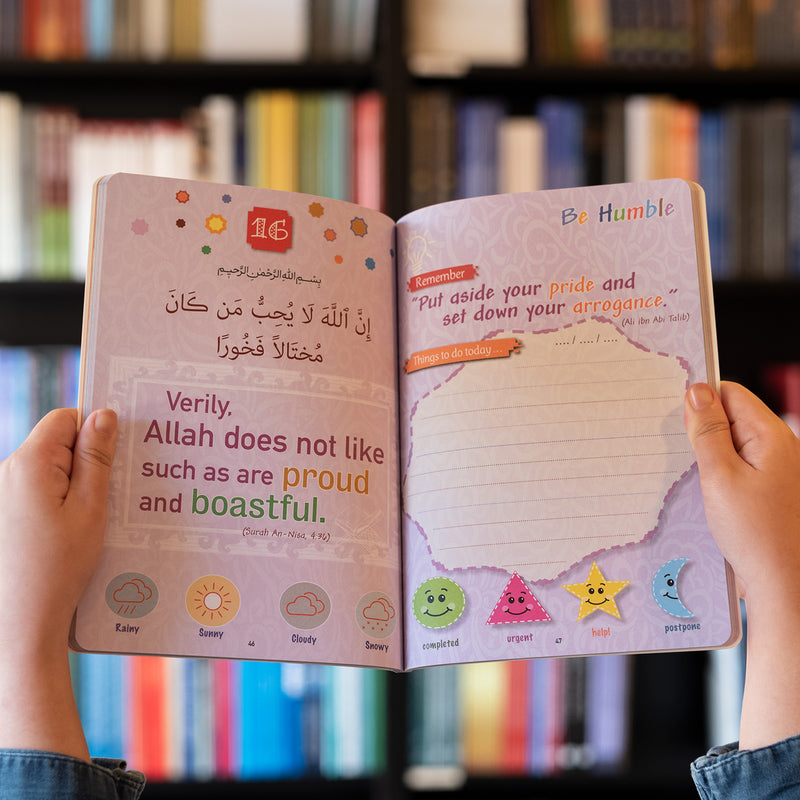 16
بِسْمِ اللهِ الرَّحْمٰنِ الرَّحِيْمِ
إِنَّ ٱللَّهَ لَا يُحِبُّ مَن كَانَ
مُخْتَالاً فَخُورًا
Verily,
Allah does not like
such as are proud
and boastful.
(Surah An-Nisa, 4:36)
Rainy
Sunny
Cloudy
Snowy
46
Be Humble
Remember
"Put aside your pride and
set down your arrogance."
(Ali ibn Abi Talib)
Things to do today...
.... / .... / ....
completed
urgent
help!
postpone
47